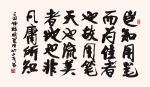 豈知用筆
而为佳者
也故用笔
天也流美
者地也非
凡庸所知